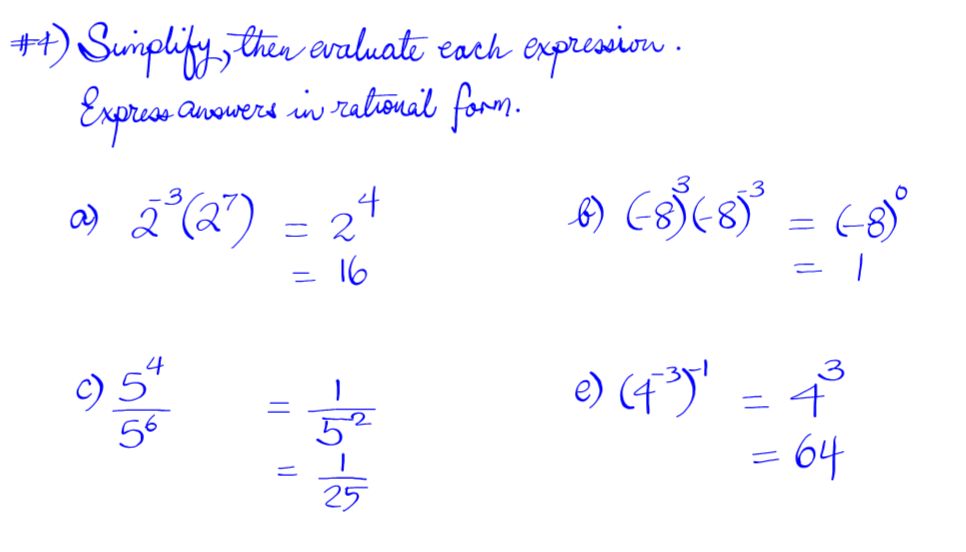 #4) Simplify, then evaluate each expression.
Express answers in rational form.
a) 2⁻³(2⁷) = 2⁴
= 16
b) (-8)³(-8)⁻³ = (-8)⁰
= 1
c) 5⁴/5⁶ = 1/5²
= 1/25
e) (4⁻³)⁻¹ = 4³
= 64